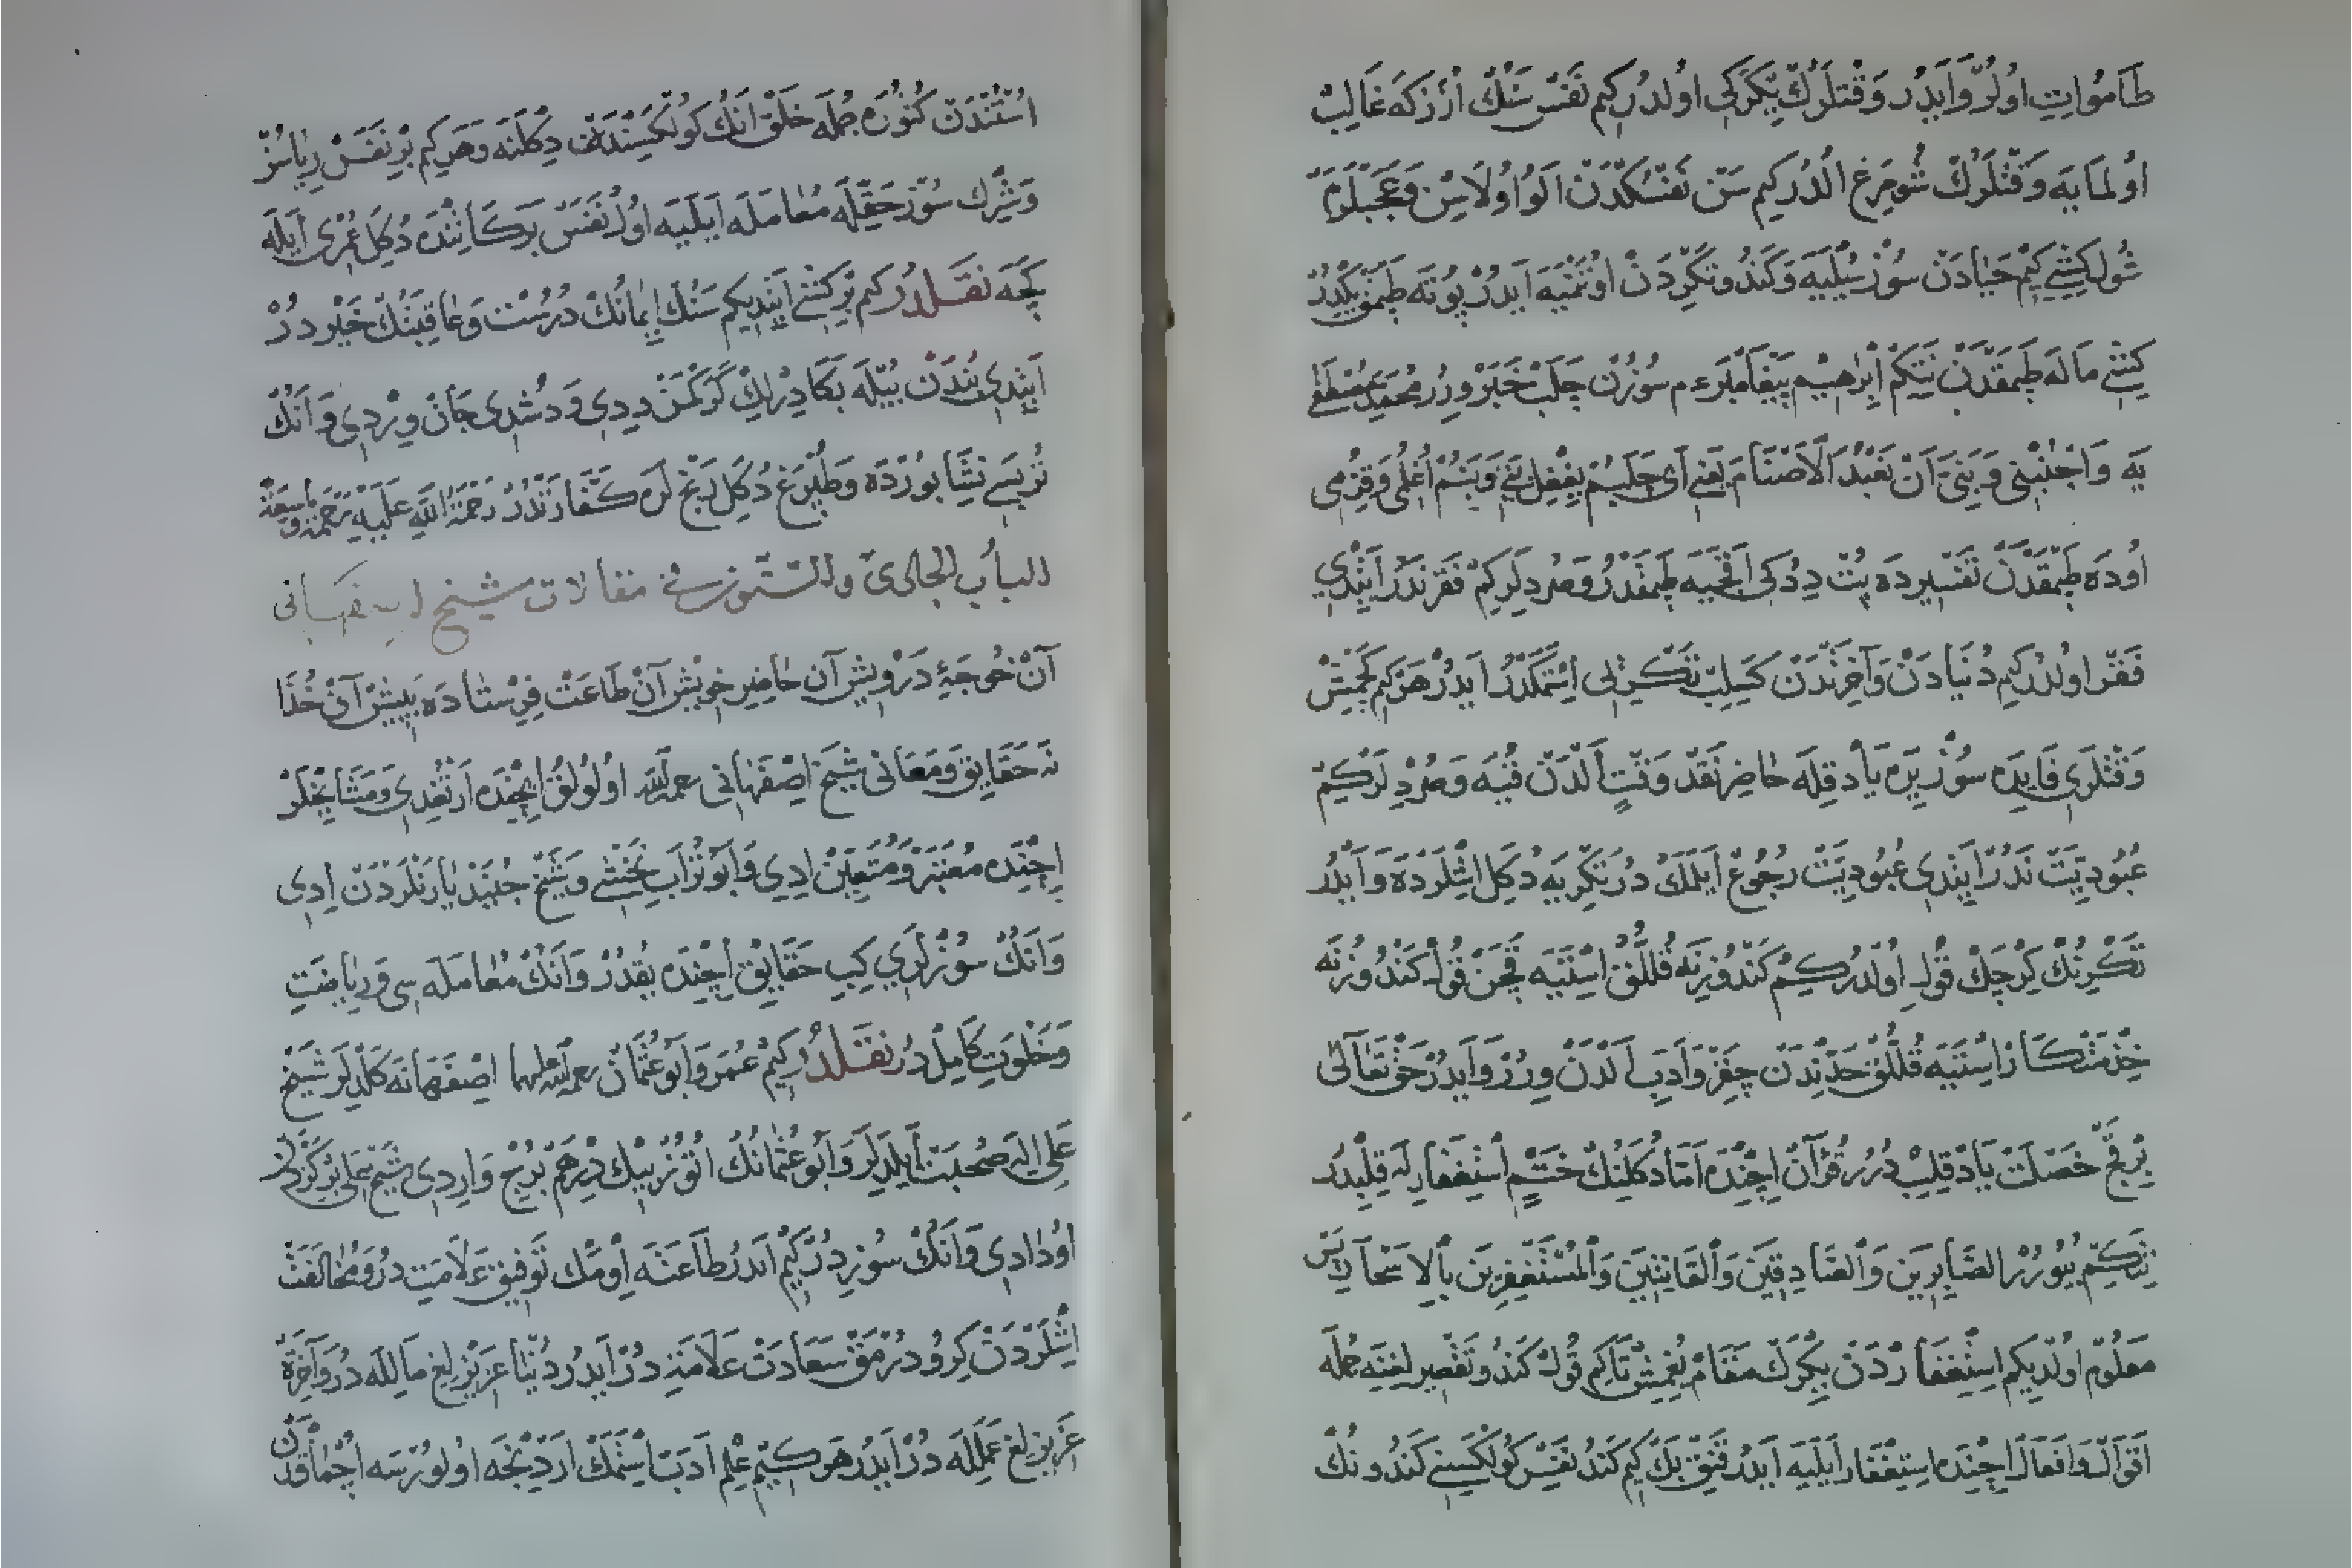 طاموات اولر و ايدر وقتلرك يكركى اولدر كم نفس سنك ارزكه غالب
اولمايه وقتلرك شومرغ الدر كيم سن نفسكدن الو اولاسن وعجبلرم
شول كشى كيم حيادن سوز سيليه وكندو تكردن اوتنميه ايدر پوته طپمق بكدر
كشى ماله طپمقدن نتكم ابرهيم پيغامبر ءم سوزن چلب خبر ورر محمد مصطفى
يه واجنبنى وبنى ان نعبد الاصنام يعنى اى چلبم يغفل بنى وبنم اغلمى وقزمى
اوده طپمقدن تفسيرده پت ددكى اقچيه طپمقدر وصرديلر كم فقر ندر ايتدى
فقر اولدر كيم دنيادن وآخرتدن كسلب تكريلى استمكدر ايدر هركم كچمش
وقتلرى فايده سوزيره ياد قله حاضر نقد وقت الدن قيه وصرديلر كيم
عبوديت ندر ايتدى عبوديت رجوع ايلمك در تكريه دكل اشلرده وايدر
تكرنك كرچك قول اولدر كيم كندوزنه قللق استيه قچن قول كندوزنه
خذمتكار استيه قللق حدندن چقر وادب الدن ورر وايدر حق تعالى
بر قچ خصلت ياد قلب درر قرآن اچنده اما دكلنك ختم استغفارله قلبدر
نتكيم بيورر الصابرين والصادقين والقانتين والمستغفرين بالاسحار پس
معلوم اولديكم استغفاردن يكرك مقام يغمش تاكم قول كندو تقصيرلغنه جمله
اقوال وافعال اچنده استغفار ايليه ايدر قنق بك كيم كند نفس كولكسنى كندونك
استندن كتوره جمله خلق انك كولكسندن دكلنه وهركم بر نفس رياسز
وشرك سوز حقله معامله ايليه اول نفس بركاتنده دكل عمرى ايله
كچه نقلدر كم بر كشى ايتديكم سنك ايمانك درست وعاقبتك خيردر
ايتدى بندن بيله بكا درلك كركمز ديدى ودشدى جان ويردى وانك
تربسى نشابورده وطپرغ دكل رنج لره كفارتدر رحمة الله عليه رحمة واسعة
الباب الحادى والستون فى مقالات شيخ اصفهانى
آن خوجهٔ درويش آن حاضر خويش آن طاعت فرستاده پيش آن خذا
نه حقايق ومعانى شيخ اصفهانى رحمه الله اولولق اچنده ارتغدى ومشايخلر
اچنده معتبر ومتعين ادى وابو تراب نخشى وشيخ جنيد يارنلردن ادى
وانك سوزلرى كبى حقايق اچنده يقدر وانك معامله سى ورياضت
وخلوت كامل در نقلدر كيم عمر وابو عثمان رحمة الله عليهما اصفهانه كلديلر شيخ
على اله صحبت ايلديلر وابو عثمانك اتوز بيك درهم برج واردى شيخ على بركزدن
اودادى وانك سوزدر كيم ايدر طاعته اومك توفيق علامت در ومخالفت
اشلردن كرو درمق سعادت علامتدر ايدر دنيا عزيزلغ مالله در وآخرة
عزيزلغ عملله در ايدر هركيم علم ادب استمك اردنجه اولورسه اچماقدن